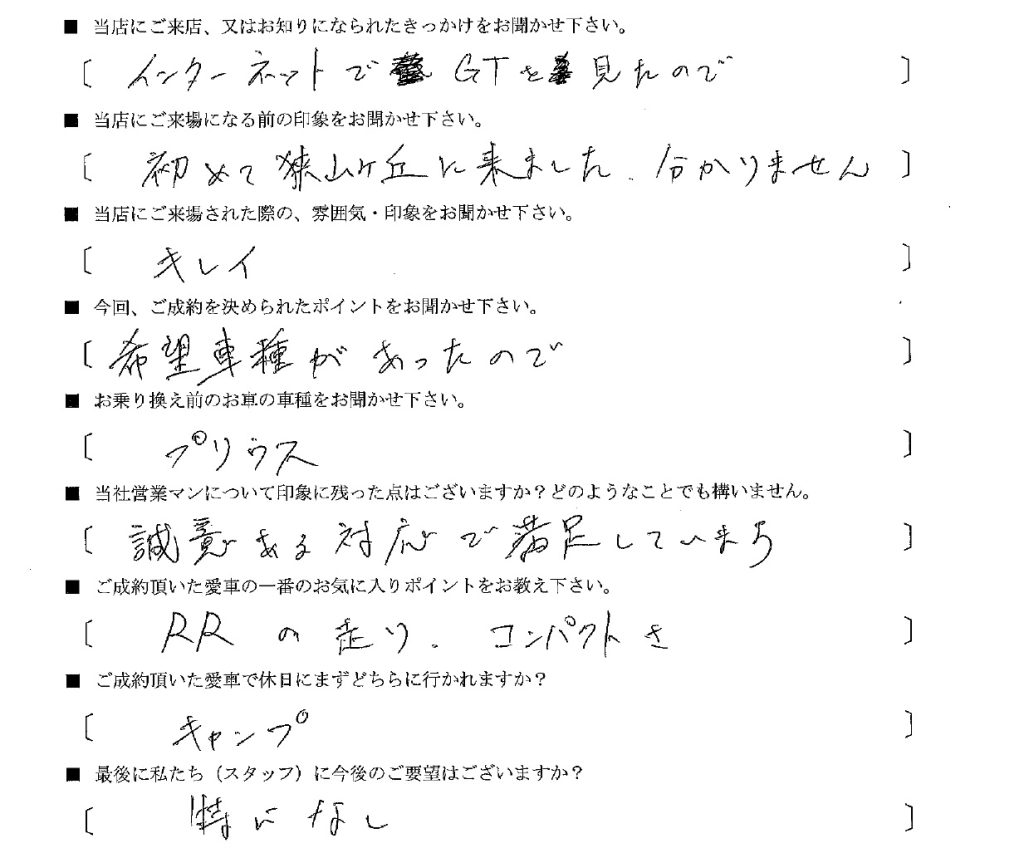 ■ 当店にご来店、又はお知りになられたきっかけをお聞かせ下さい。
[ インターネットで GTを 見たので ]
■ 当店にご来場になる前の印象をお聞かせ下さい。
[ 初めて狭山ヶ丘に来ました. 分かりません ]
■ 当店にご来場された際の、雰囲気・印象をお聞かせ下さい。
[ キレイ ]
■ 今回、ご成約を決められたポイントをお聞かせ下さい。
[ 希望車種が あったので ]
■ お乗り換え前のお車の車種をお聞かせ下さい。
[ プリウス ]
■ 当社営業マンについて印象に残った点はございますか？どのようなことでも構いません。
[ 誠意ある対応で満足しています ]
■ ご成約頂いた愛車の一番のお気に入りポイントをお教え下さい。
[ RRの走り. コンパクトさ ]
■ ご成約頂いた愛車で休日にまずどちらに行かれますか？
[ キャンプ ]
■ 最後に私たち（スタッフ）に今後のご要望はございますか？
[ 特になし ]